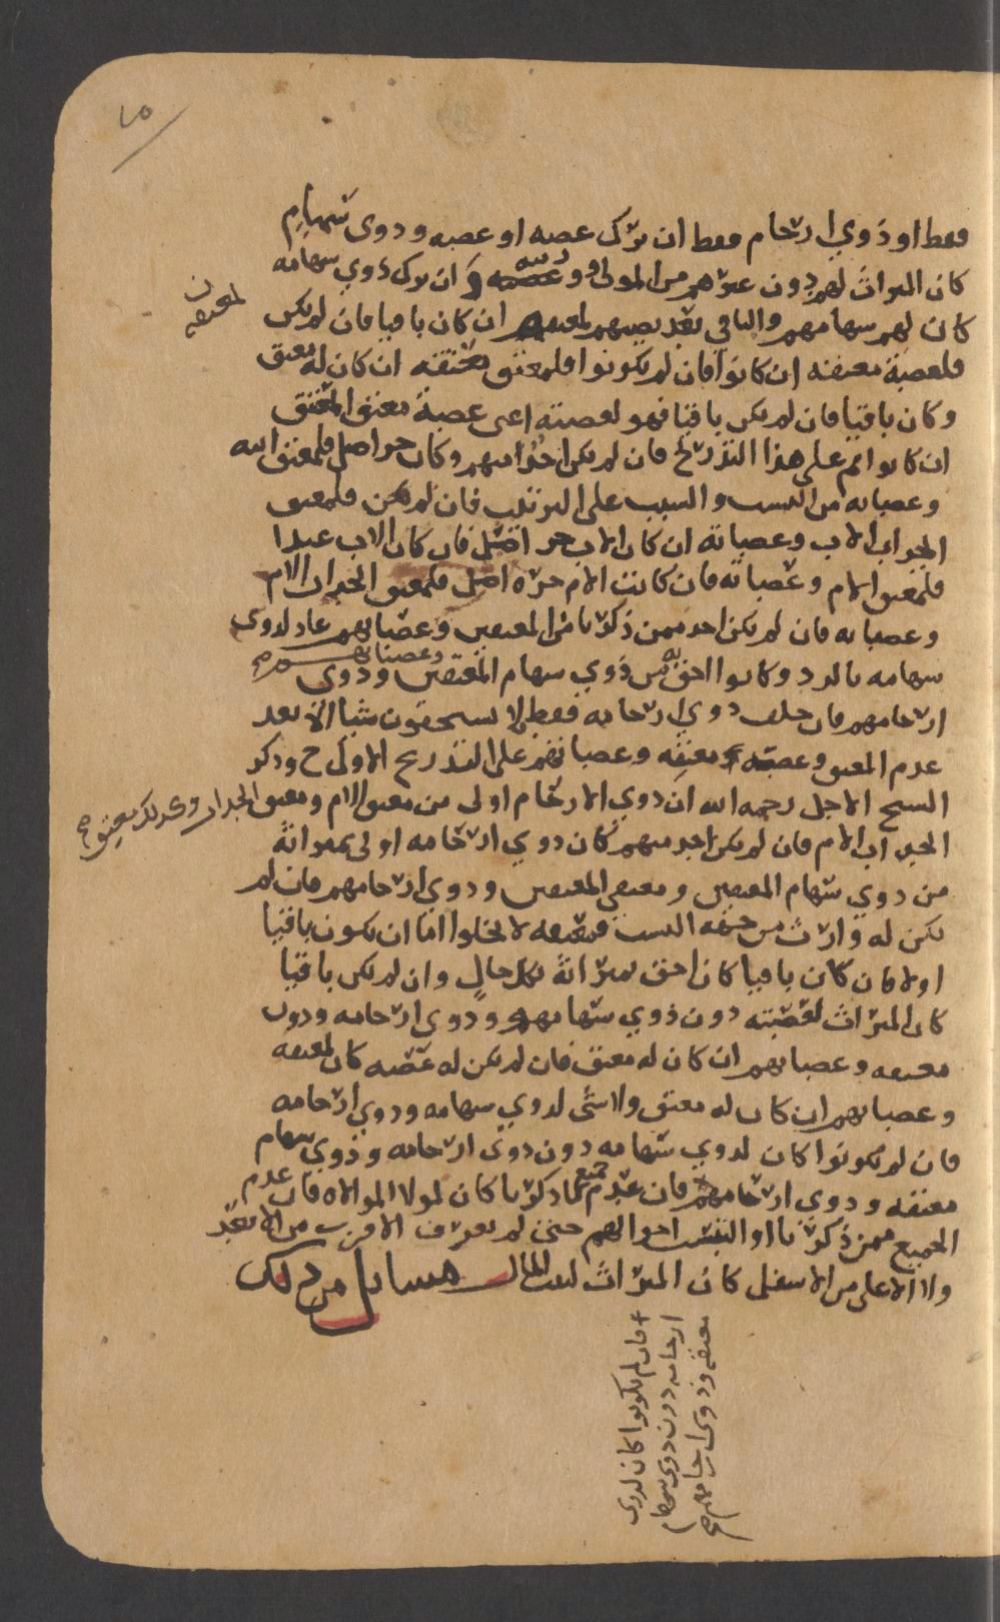 ١٥
فقط او ذوي ارحام فقط ان ترك عصبه او عصبه وذوى سهام
كان الميراث لهم دون غيرهم من المولى وان ترك ذوي سهامه
كان لهم سهامهم والباقي بعد نصيبهم ان كان باقيا فان لم يكن
لمعتقه
فلعصبة معتقه ان كانوا فان لم يكونوا فلمعتق معتقه ان كان له معتق
وكان باقيا فان لم يكن باقيا فهو لعصبته اعنى عصبة معتق المعتق
ان كانوا ثم على هذا التدريج فان لم يكن احد منهم وكان حر اصل فلمعتق ابيه
وعصباته من النسب والسبب على الترتيب فان لم يكن فلمعتق
الجد اب الاب وعصباته ان كان الاب حر اصل فان كان الاب عبدا
فلمعتق الام وعصباته فان كانت الام حره اصل فلمعتق الجد اب الام
وعصباته فان لم يكن احد ممن ذكرنا من المعتقين وعصباتهم عاد لذوي
سهامه بالرد وكانوا احق به من ذوي سهام المعتقين وذوى
وعصباتهم صح
ارحامهم فان خلف ذوي ارحامه فقط لا يستحقون شيا الا بعد
عدم المعتق وعصبته ومعتقه وعصباتهم على التدريج الاولى ح وذكر
الشيخ الاجل رحمه الله ان ذوي الارحام اولى من معتق الام ومعتق الجد
الجد اب الام فان لم يكن احد منهم كان ذوي ارحامه اولى بميراثه
من ذوي سهام المعتقين ومعتقى المعتقين وذوي ارحامهم فان لم
يكن له وارث من جهة النسب فمعتقه لا يخلوا اما ان يكون باقيا
اولا فان كان باقيا كان احق بميراثه بكل حال وان لم يكن باقيا
كان الميراث لعصبته دون ذوي سهامهم وذوي ارحامه ودون
معتقه وعصباتهم ان كان له معتق فان لم يكن له عصبه كان لمعتقه
وعصباتهم ان كان له معتق ولا شى لذوي سهامه وذوي ارحامه
فان لم يكونوا كان لذوي سهامه دون ذوى ارحامه وذوي سهام
معتقه وذوي ارحامهم فان عدم جميع ما ذكرنا كان لمولا الموالاه فان عدم
الجميع ممن ذكرنا او التبست احوالهم حتى لم يعرف الاقرب من الابعد
ولا الاعلى من الاسفل كان الميراث لبيت المال مسائل من ذلك
+ فان لم يكونوا كان لذوى
ارحامه دون ذوى سهام
معتقه وذوى ارحامهم صح